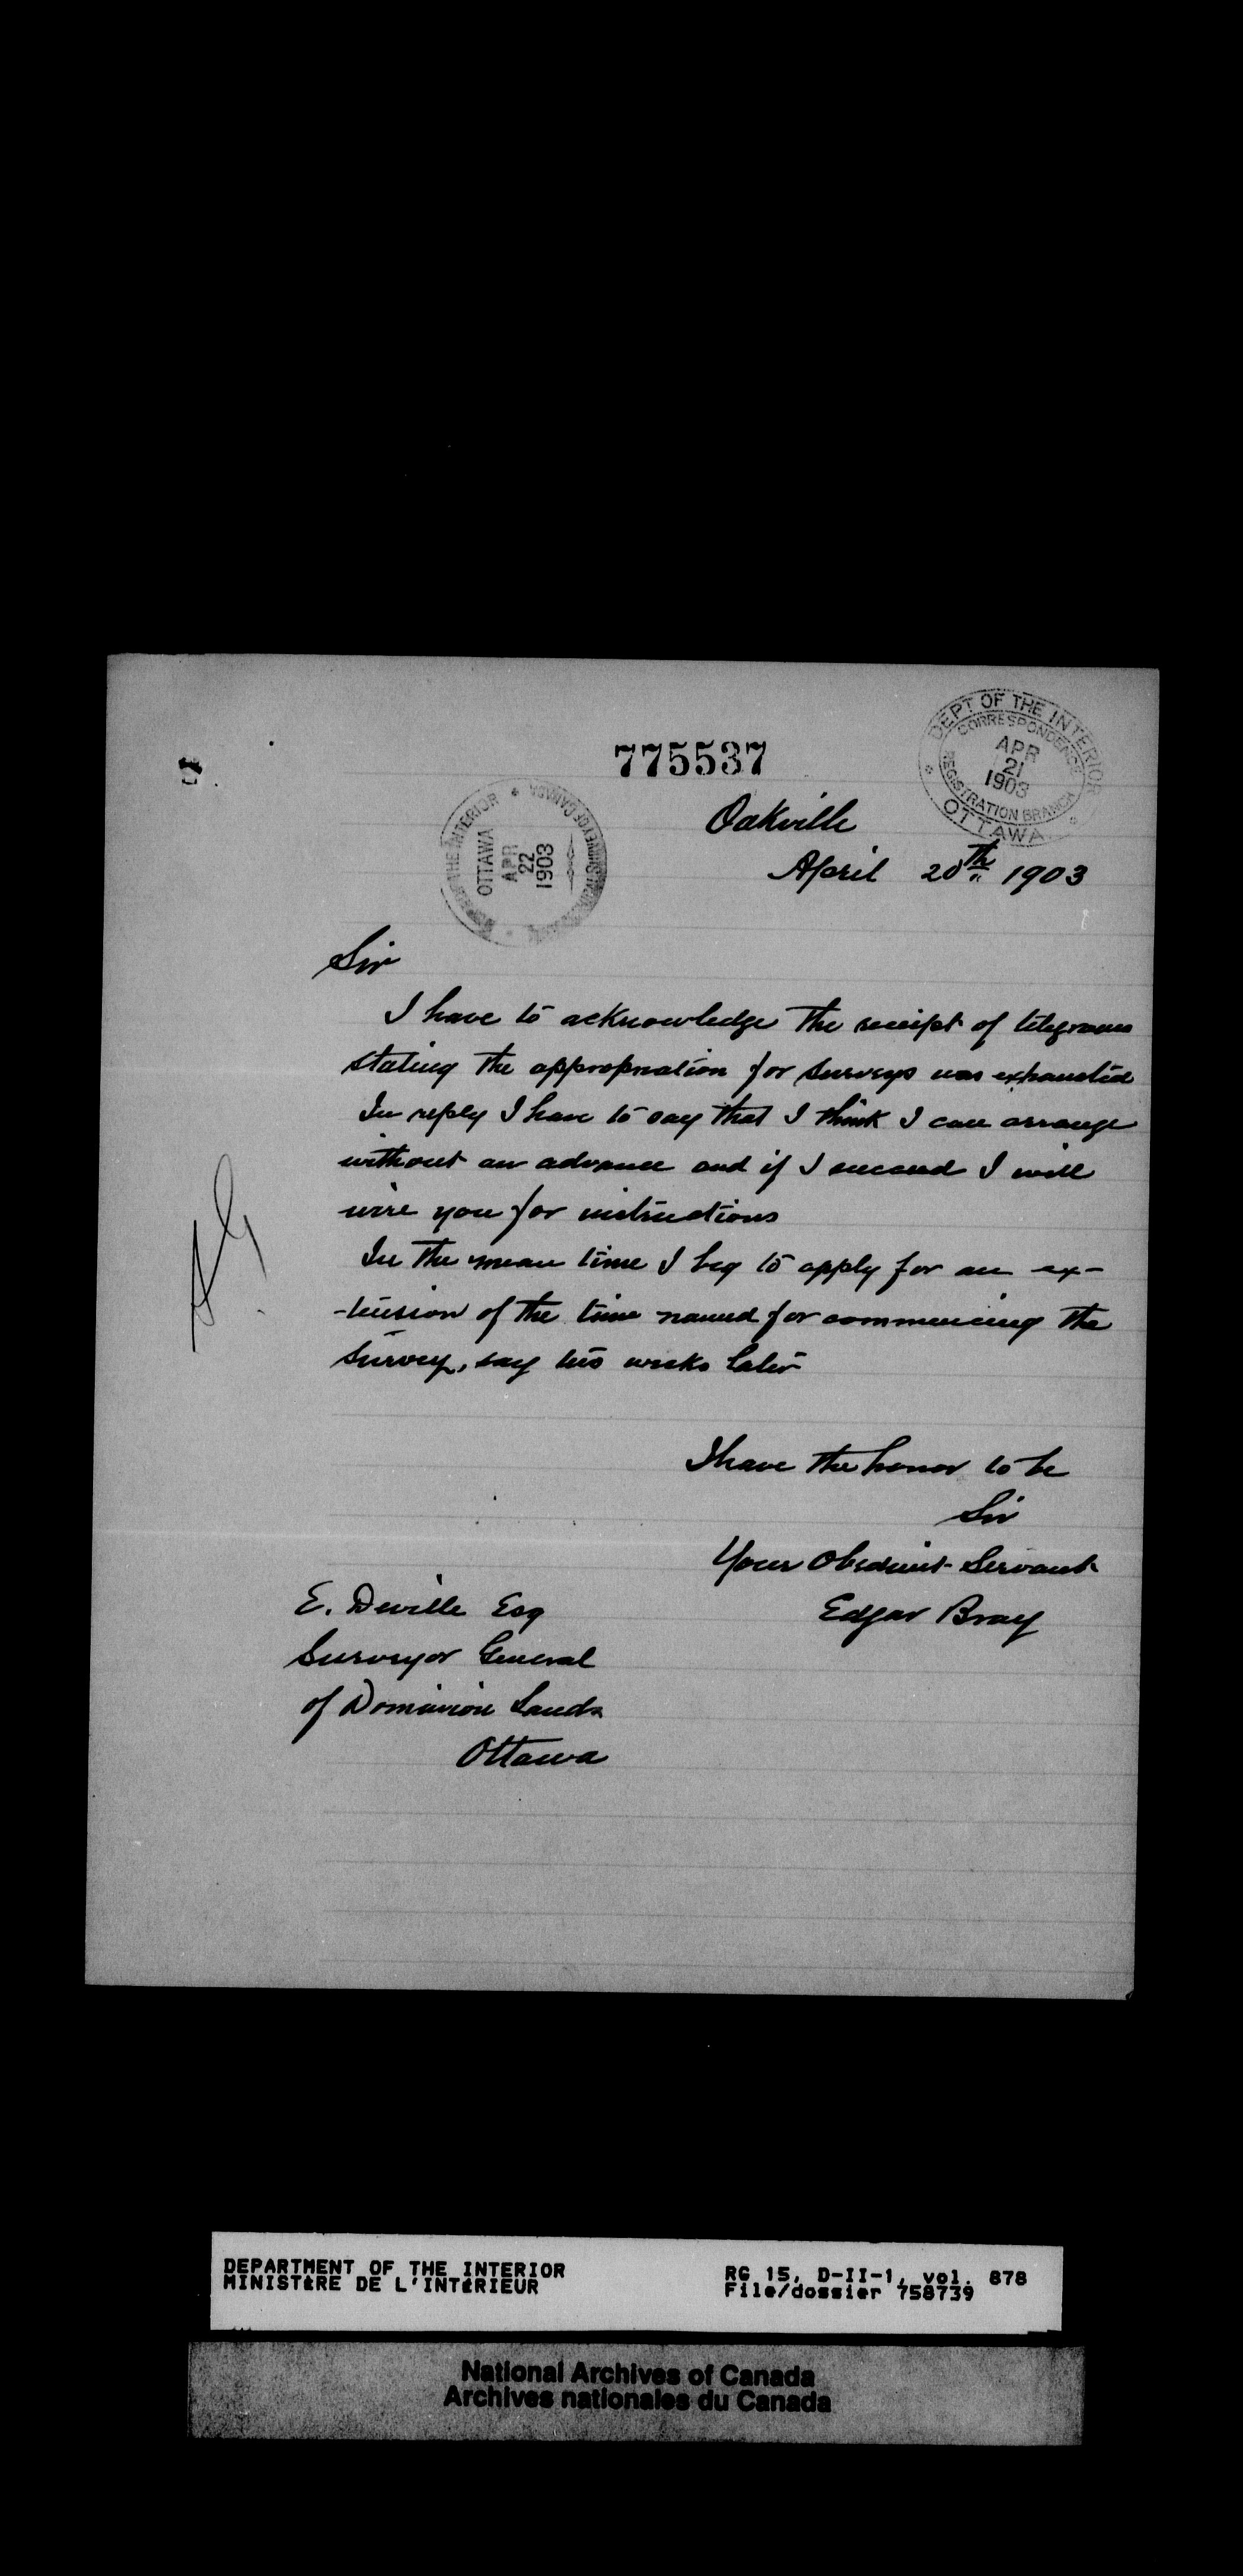 775537
DEPT OF THE INTERIOR
CORRESPONDENCE
APR
21
1903
REGISTRATION BRANCH
OTTAWA
THE INTERIOR
OTTAWA
APR
22
1903
Oakville
April 20th 1903
Sir
I have to acknowledge the receipt of telegram
stating the appropriation for surveys was exhausted
In reply I have to say that I think I can arrange
without an advance and if I succeed I will
wire you for instructions
In the mean time I beg to apply for an ex-
-tension of the time named for commencing the
survey, say two weeks later
I have the honor to be
Sir
Your Obedient Servant
Edgar Bray
E. Deville Esq
Surveyor General
of Dominion Lands
Ottawa
DEPARTMENT OF THE INTERIOR
MINISTÈRE DE L'INTÉRIEUR
RG 15, D-II-1, vol. 878
File/dossier 758739
National Archives of Canada
Archives nationales du Canada